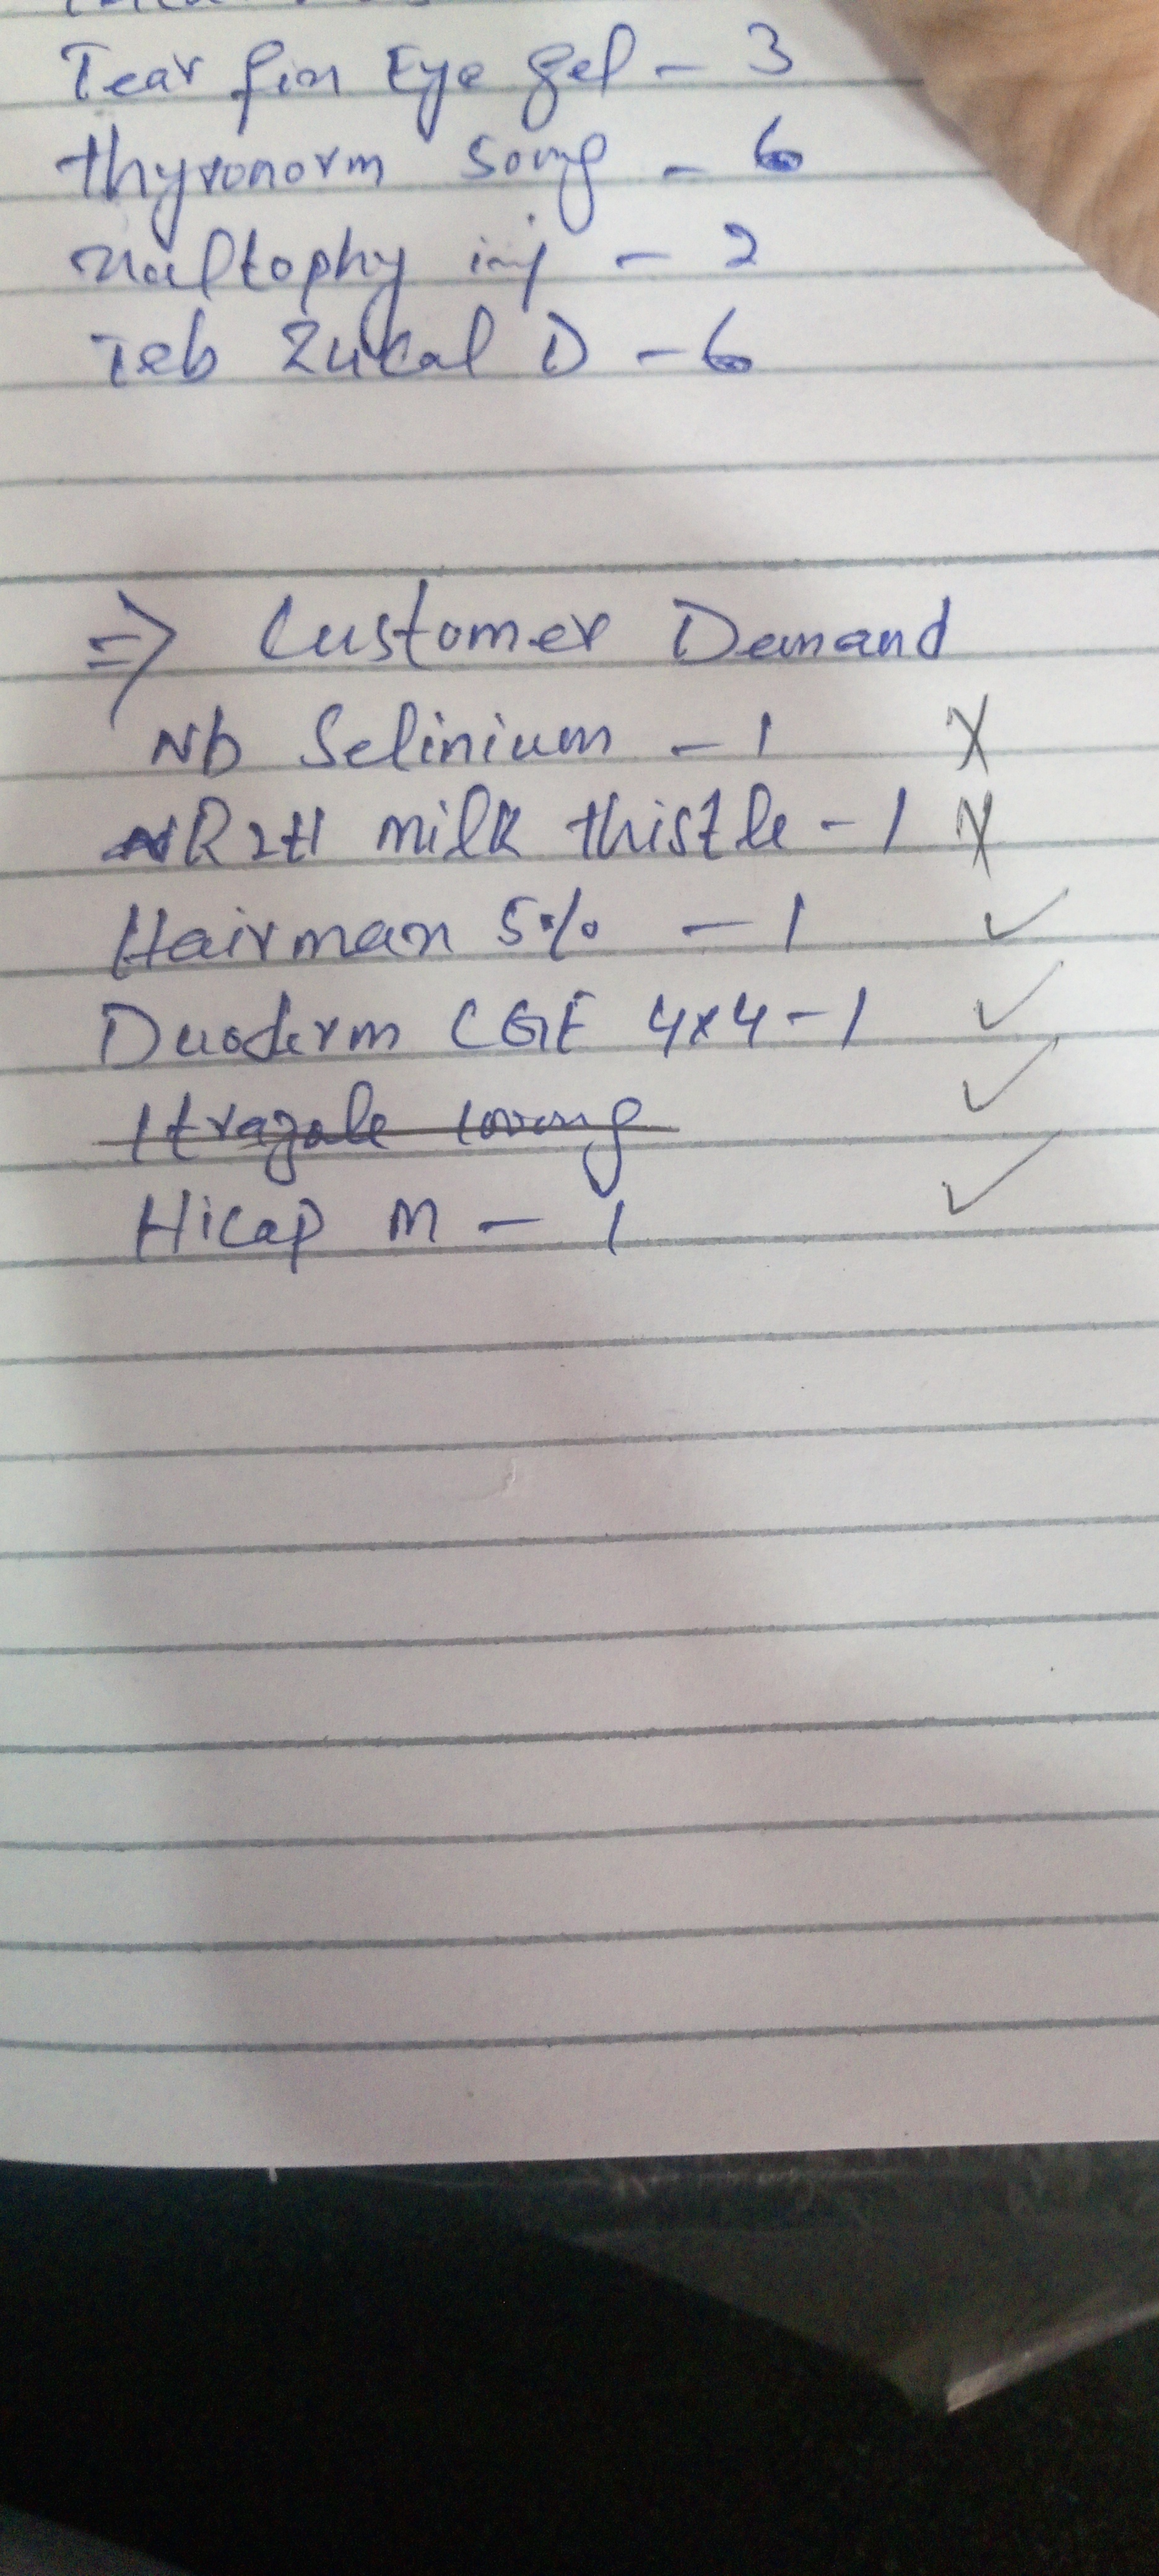 Tear fin Eye gel - 3
Thyronorm 50mg - 6
inj - 2
Teb Zukal D - 6
=> Customer Demand
Nb Selinium - 1 X
milk thistle - 1 X
Hairman 5% - 1 ✓
Duoderm CGF 4x4 - 1 ✓
Itrazole 100mg ✓
Hicap M - 1 ✓